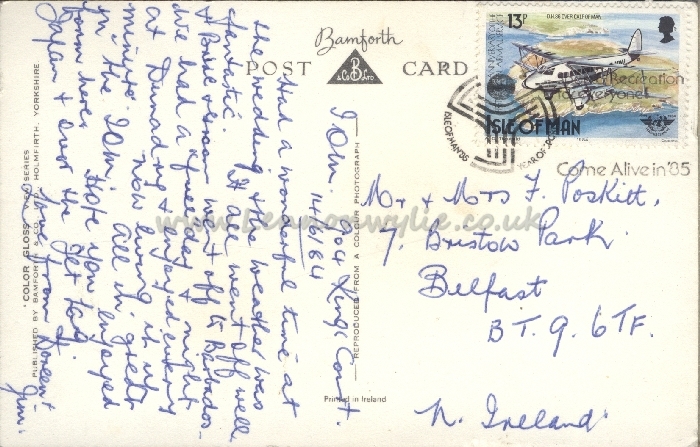 Bamforth
POST CARD
& Co B Ltd
13p
D.H.86 OVER CALF OF MAN
ISLE OF MAN
Recreation
for everyone!
ISLE OF MAN '85
YEAR OF SPORT
Come Alive in '85
904 King's Court.
I.O.M. 14/6/84
Had a wonderful time at
the wedding & the weather was
fantastic. It all went off well
& Bride & Groom went off to Barbados –
we had a free day & night
at Dunadry & enjoyed every
minute. Now living it up
in the I.O.M. All in great
form here. Hope you enjoyed
Japan & over the jet lag.
Love from Doreen &
Jim.
Mr & Mrs F. Poskitt,
7, Bristow Park,
Belfast
B.T. 9. 6TF.
N. Ireland.
"COLOR GLOSS" VIEW SERIES
PUBLISHED BY BAMFORTH & CO. LTD HOLMFIRTH, YORKSHIRE
REPRODUCED FROM A COLOUR PHOTOGRAPH
Printed in Ireland